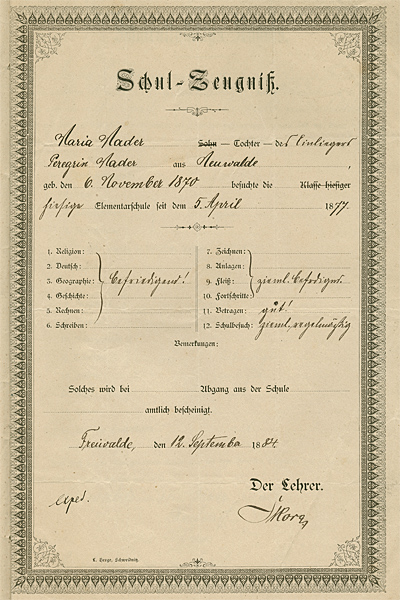 Schul-Zeugniß.
Maria Mader Sohn — Tochter — des Einliegers
Peregrin Mader aus Neuwalde,
geb. den 6. November 1870 besuchte die Klasse hiesiger
hiesige Elementarschule seit dem 5. April 1877.
1. Religion:
2. Deutsch:
3. Geographie: befriedigend!
4. Geschichte:
5. Rechnen:
6. Schreiben:
7. Zeichnen:
8. Anlagen:
9. Fleiß: zieml. befriedigend
10. Fortschritte:
11. Betragen: gut!
12. Schulbesuch: zieml. regelmäßig
Bemerkungen:
Solches wird bei Abgang aus der Schule
amtlich bescheinigt.
Freiwalde, den 12. September 1884.
Der Lehrer.
L. Heege, Schweidnitz.